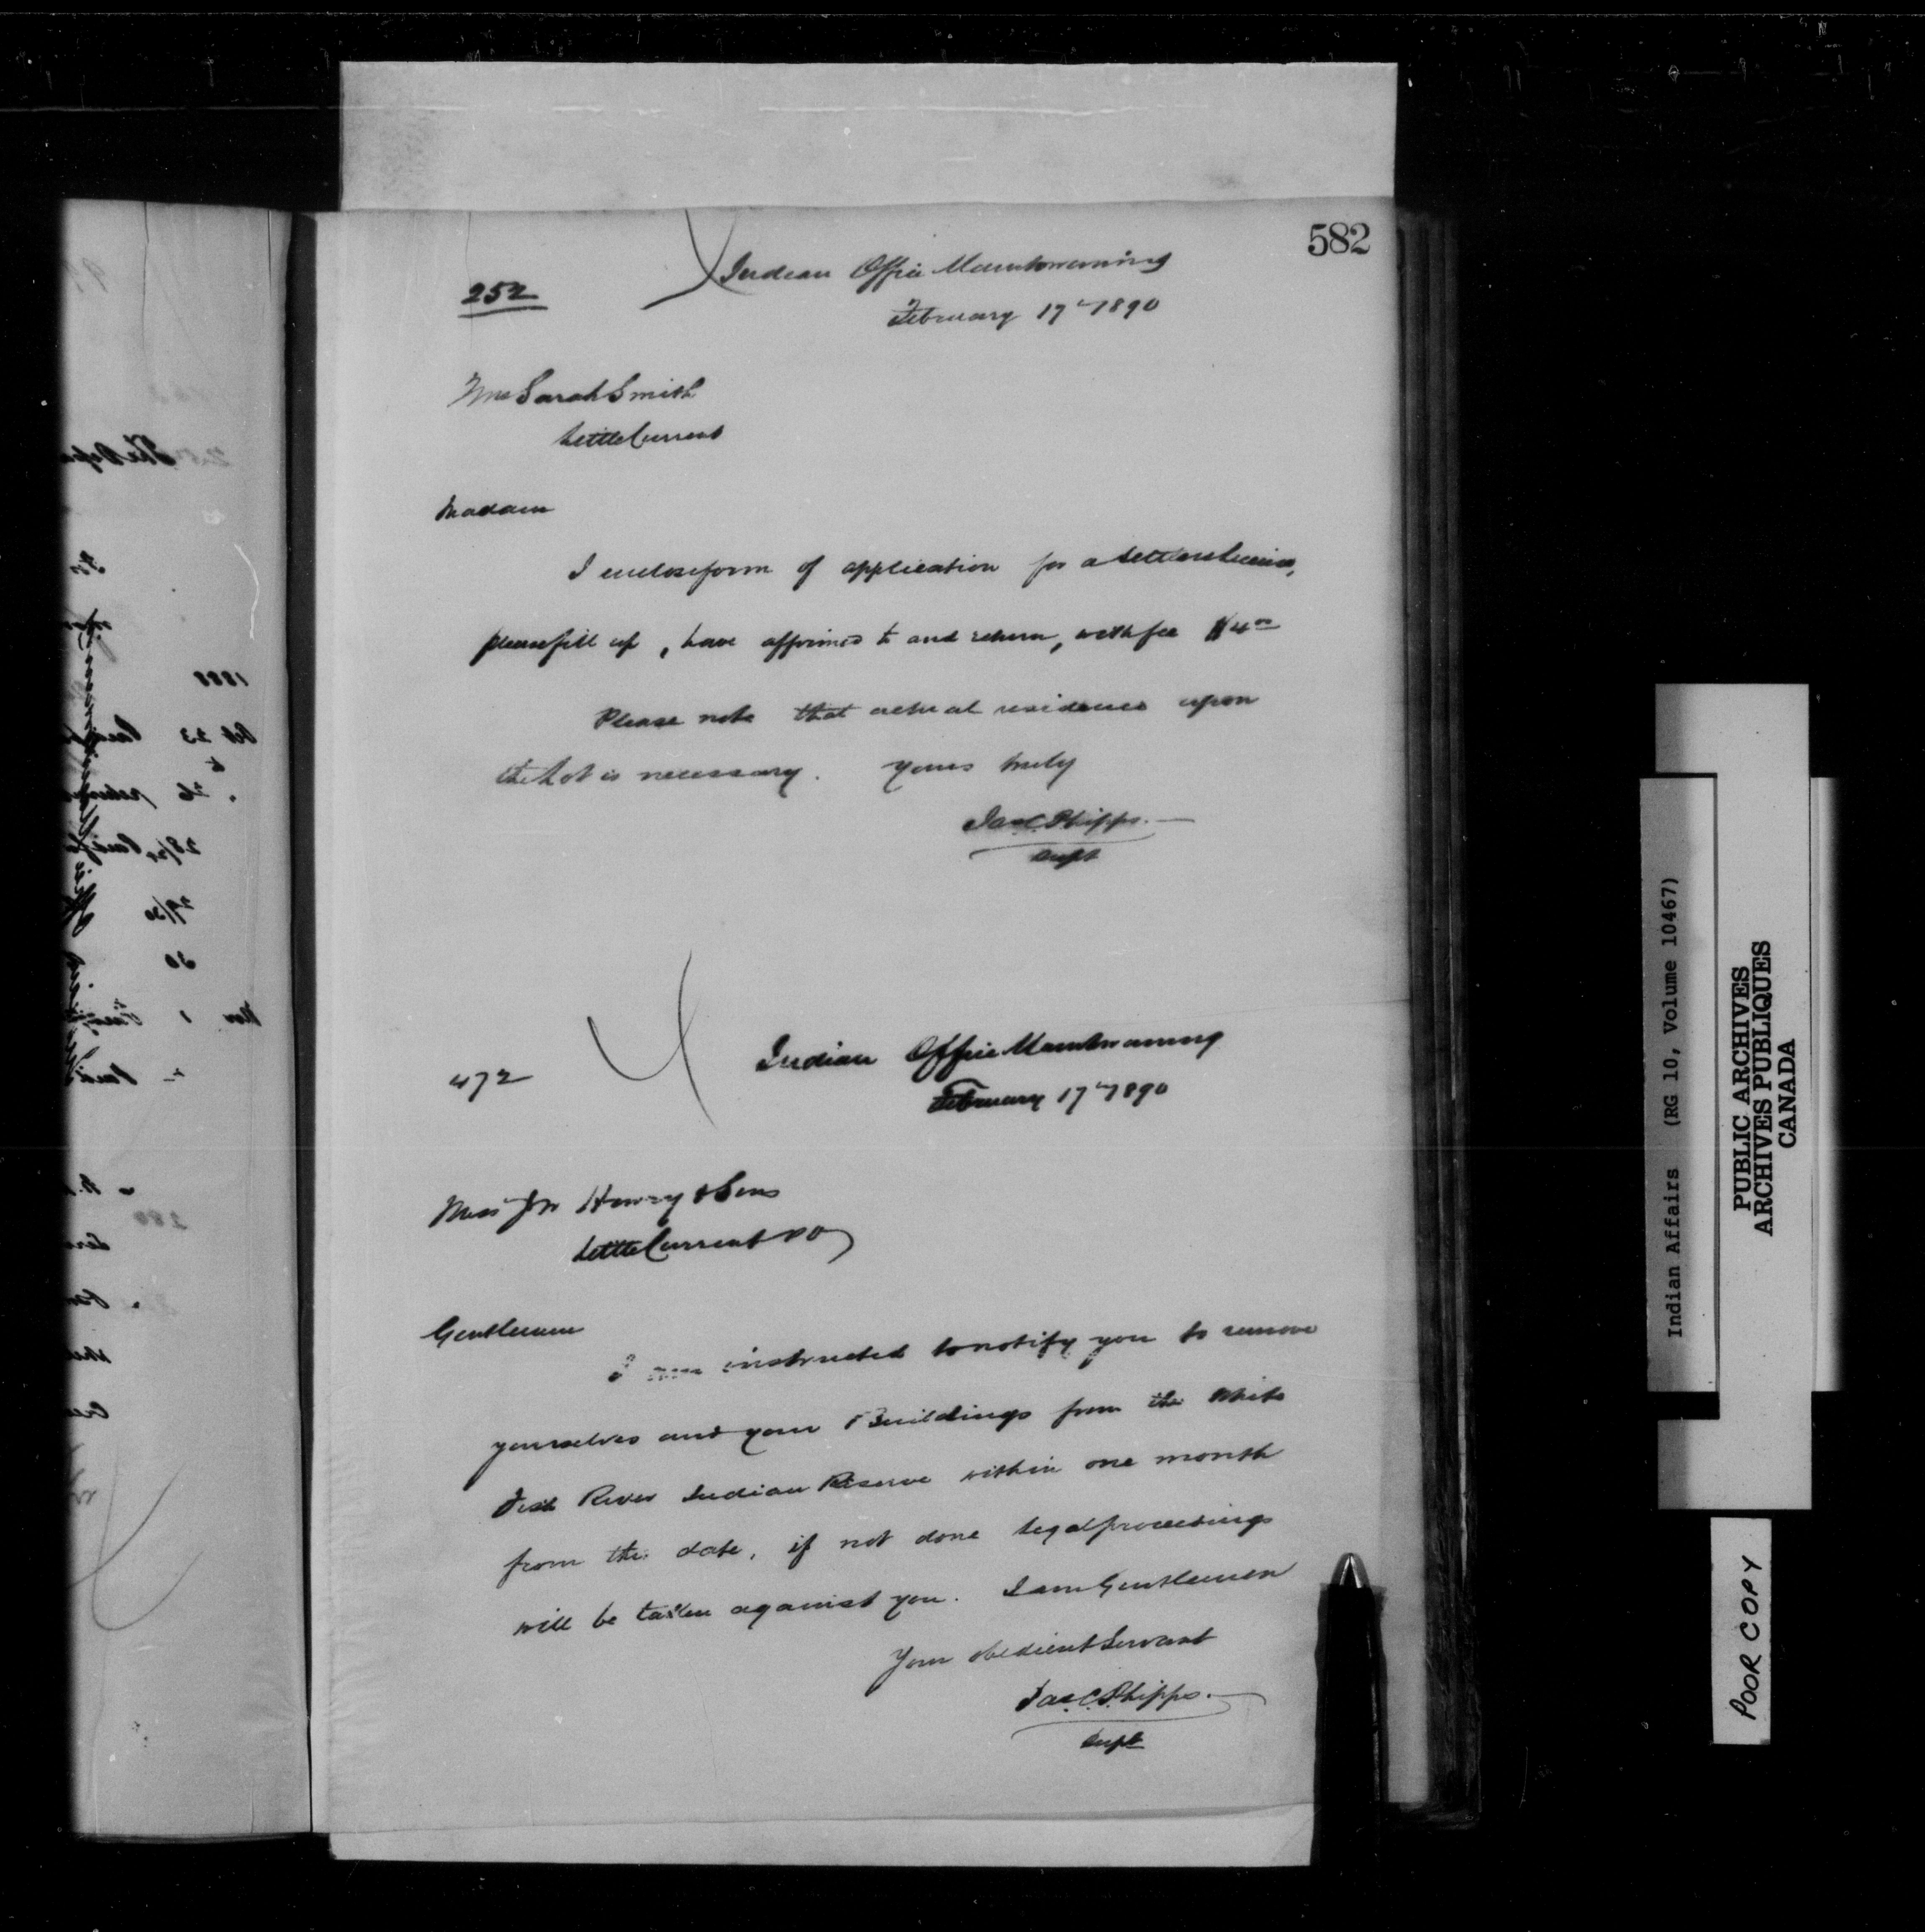 582
252
Indian Office Manitowaning
February 17th 1890
Mrs Sarah Smith
Little Current
Madam
I enclose form of application for a Settlers License,
please fill up, have affirmed to and return, with fee $4.00
Please note that actual residence upon
the Lot is necessary. Yours truly
Jas C. Phipps.
Supt
472
Indian Office Manitowaning
February 17th 1890
Mess Jno Henry & Sons
Little Current PO
Gentlemen
I am instructed to notify you to remove
yourselves and your Buildings from the White
Fish River Indian Reserve within one month
from the date, if not done legal proceedings
will be taken against you. I am Gentlemen
Your obedient Servant
Jas C. Phipps.
Supt
Indian Affairs (RG 10, Volume 10467)
PUBLIC ARCHIVES
ARCHIVES PUBLIQUES
CANADA
POOR COPY